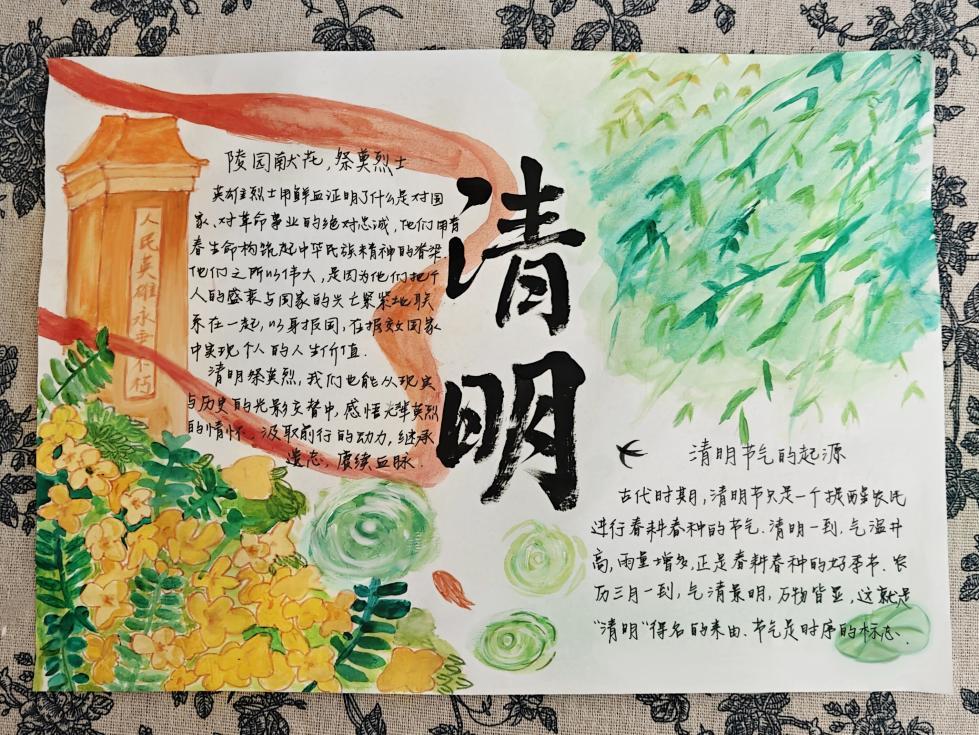 清明
人民英雄永垂不朽
陵园献花,祭奠烈士
英雄烈士用鲜血证明了什么是对国
家、对革命事业的绝对忠诚,他们用青
春生命构筑起中华民族精神的脊梁.
他们之所以伟大,是因为他们把个
人的盛衰与国家的兴亡紧紧地联
系在一起,以身报国,在报效国家
中实现个人的人生价值.
清明祭英烈,我们也能从现实
与历史的光影交替中,感悟先辈英烈
的情怀、汲取前行的动力,继承
遗志,赓续血脉.
清明节气的起源
古代时期,清明节只是一个提醒农民
进行春耕春种的节气.清明一到,气温升
高,雨量增多,正是春耕春种的好季节.农
历三月一到,气清景明,万物皆显,这就是
“清明”得名的来由、节气是时序的标志.